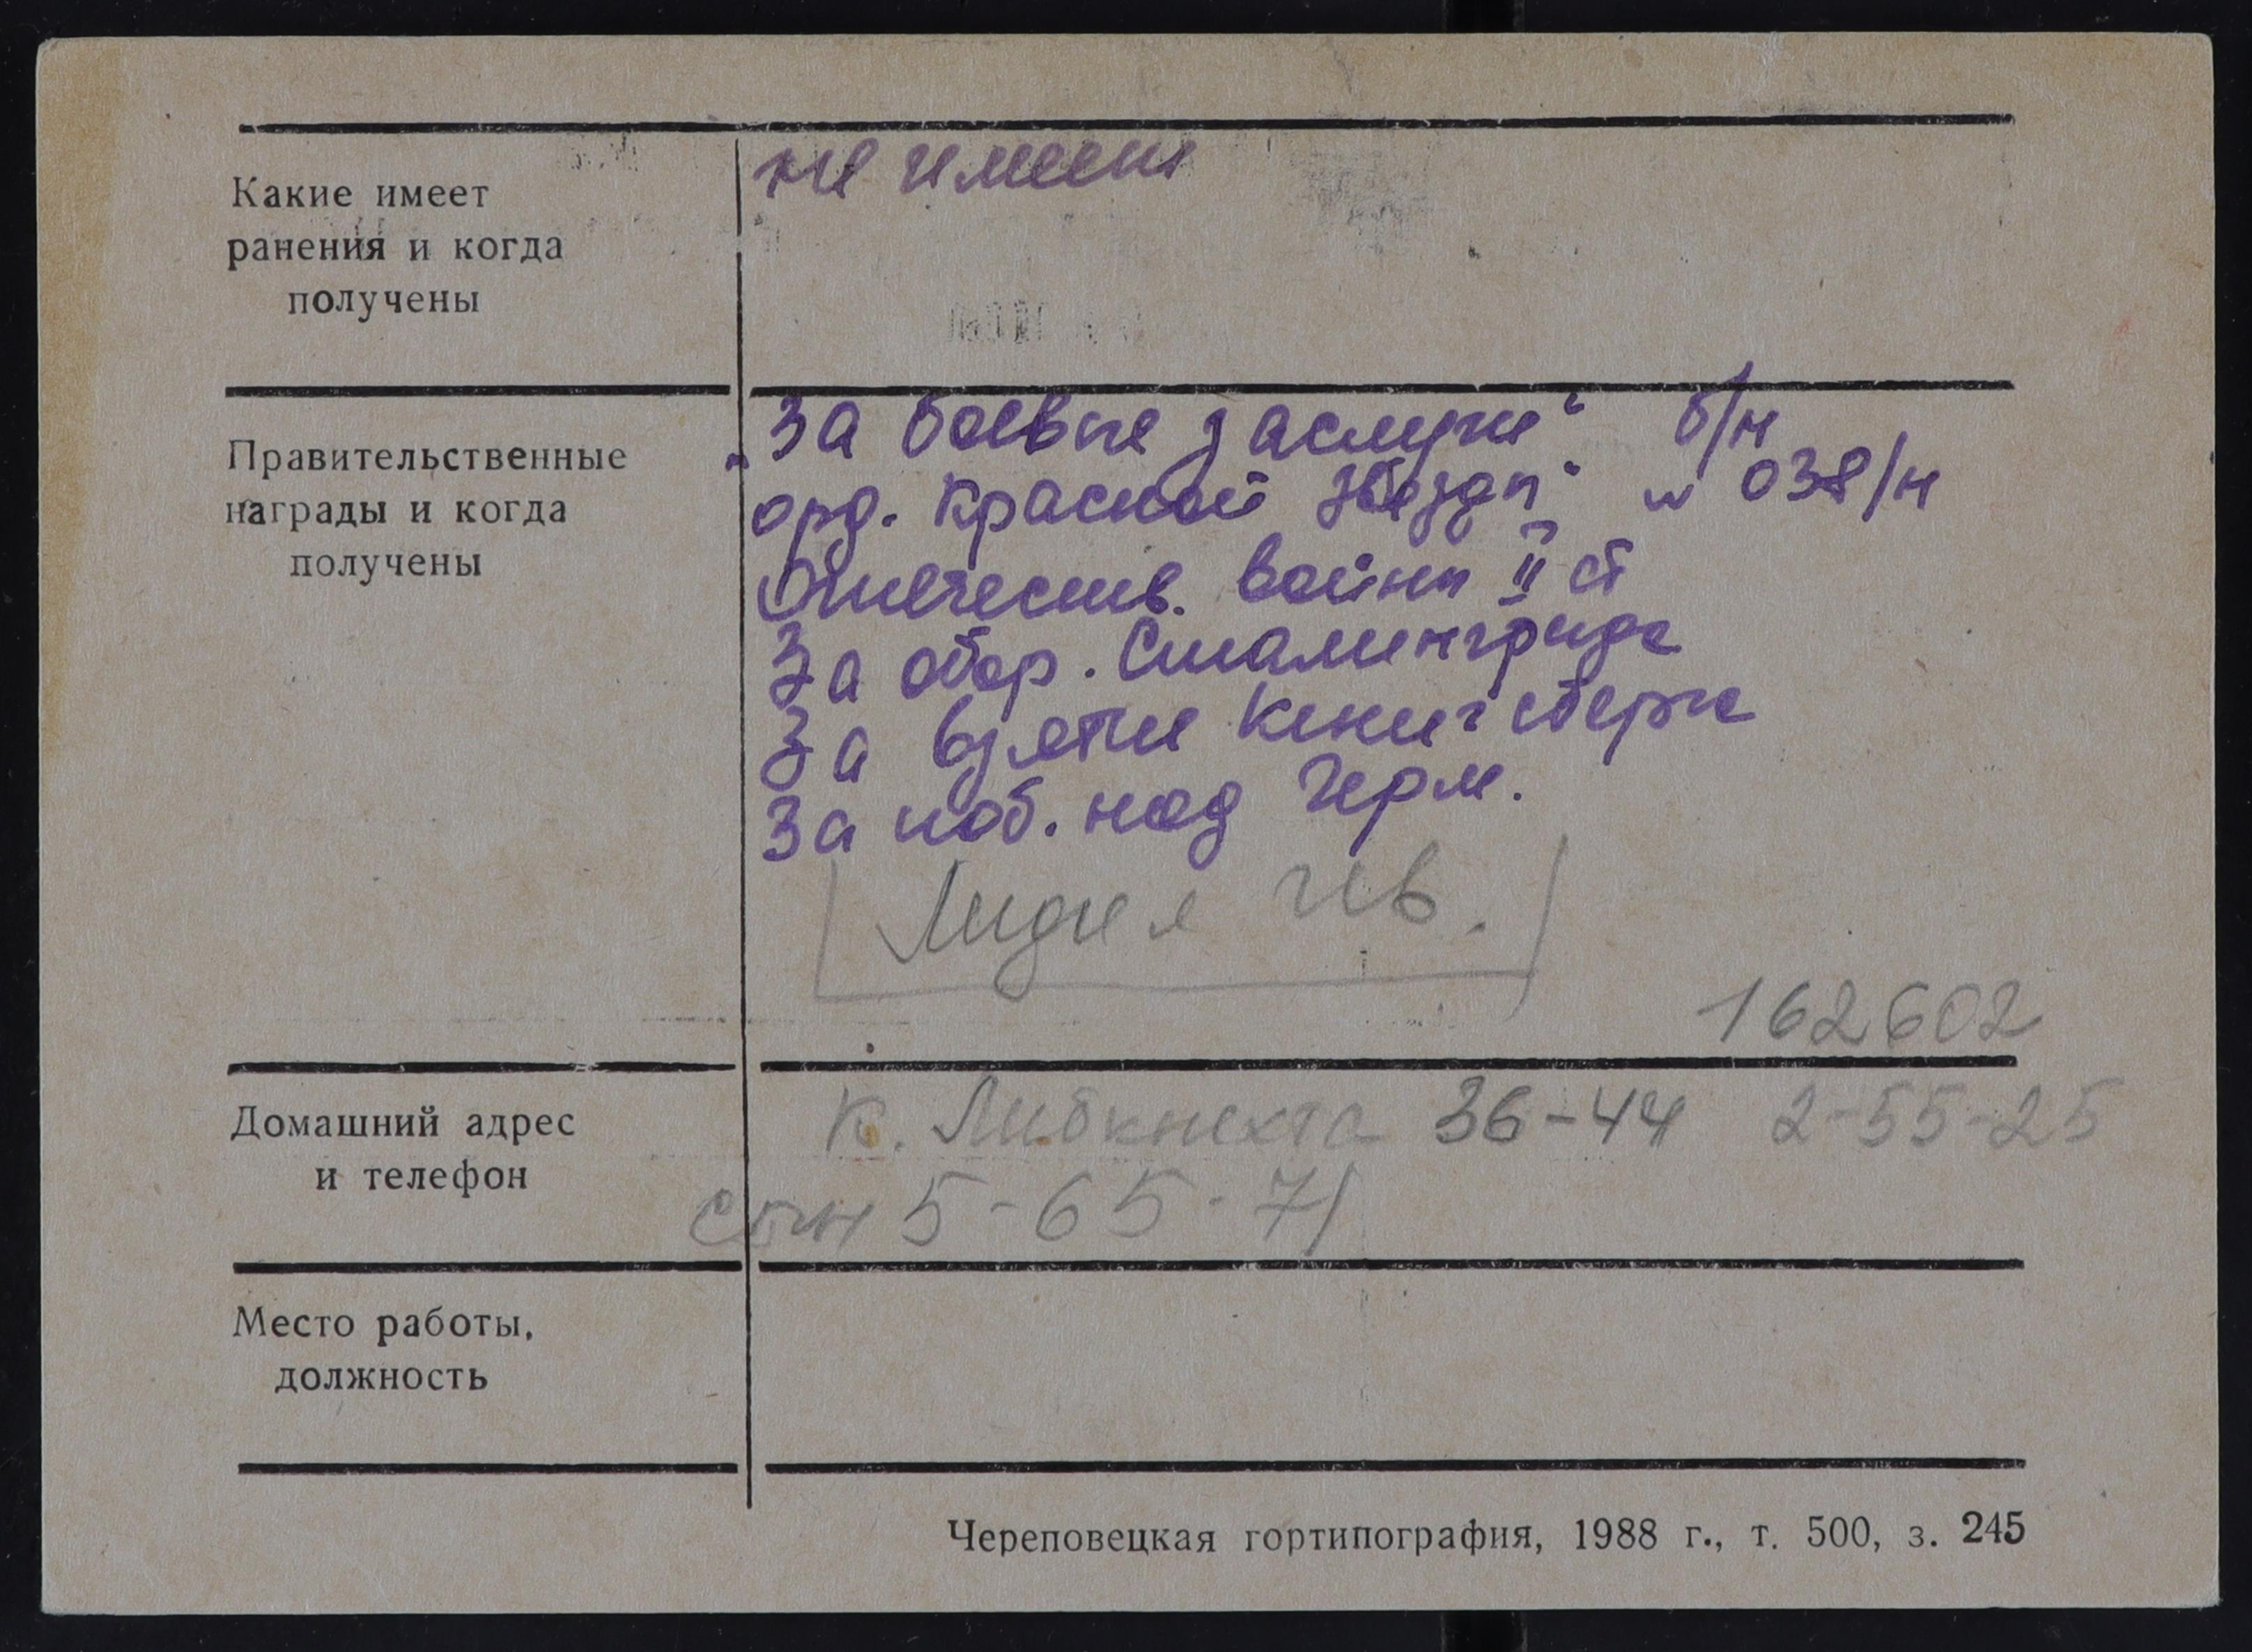 Какие имеет
ранения и когда
получены
не имеет
Правительственные
награды и когда
получены
„За боевые заслуги“ б/н
орд. Красной Звезды“ 038/н
Отечеств. войны II ст
За обор. Сталинграда
За взятие Кенигсберга
За поб. над Герм.
Лидия Ив.
162602
Домашний адрес
и телефон
К. Либкнехта 36-44 2-55-25
сын 5-65-71
Место работы,
должность
Череповецкая гортипография, 1988 г., т. 500, з. 245